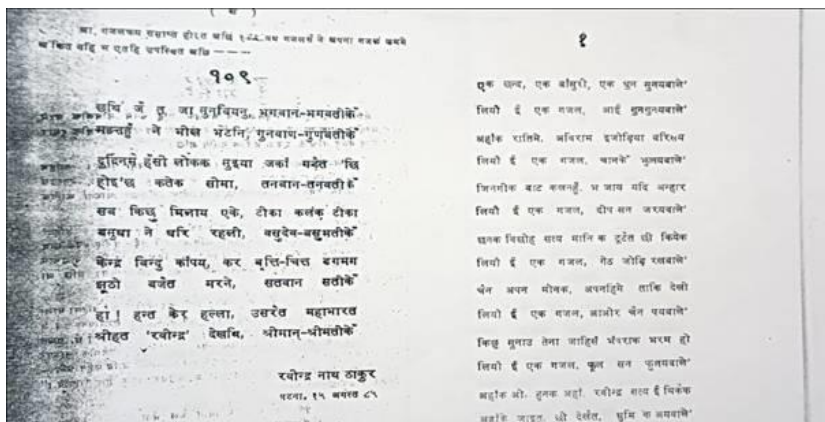 ( स )
आ, गजलक्रम समाप्त होइत अछि १०८ टा गजलसँ ने अपना गजलक क्रममे
१०९
छथि जँ तू, जा सुनबियनु, भगवान-भगवतीकेँ
मङनहुँ ने भीख भेटनि, गुनवाण-गुणवतीकेँ
दुर्दिनमे, हँसी लोकक सुइया जकाँ गड़ैत 'छि
होइ'छ कतेक सीमा, तनवान-तनवतीकेँ
सब किछु मिलाय एके, टीका कलंक टीका
बसुधा ने धरि रहली, वसुदेव-वसुमतीकेँ
केन्द्र बिन्दु काँपय, कर वृत्ति-चित्त डगमग
झूठो बजैत मरने, सतवान सतीकेँ
हां ! हन्त केर हल्ला, उसरैत महाभारत
श्रीहत 'रवीन्द्र' देखथि, श्रीमान्-श्रीमतीकेँ
रवीन्द्र नाथ ठाकुर
पटना, १५ अगस्त ८५
१
एक छन्द, एक बाँसुरी, एक धुन सुनयबाले'
लियौ ई एक गजल, आई गुनगुनयबाले'
अहाँक रातिमे, अविराम इजोड़िया बरिसय
लियौ ई एक गजल, चानकेँ भुलयबाले'
जिनगीक बाट कतहुँ, भ जाय यदि अन्हार
लियौ ई एक गजल, दीप सन जरयबाले'
छनक विछोह सत्य मानि क टूटैत छी कियेक
लियौ ई एक गजल, गेठ जोड़ि रखबाले'
चैन अपन भीतक, अपनहिमे ताकि देखी
लियौ ई एक गजल, आओर चैन पयबाले'
किछु सुनाउ तेना जाहिसँ भँवराक भरम हो
लियौ ई एक गजल, फूल सन फुलयबाले'
अहाँक ओ, हुनक अहाँ, रवीन्द्र सत्य ई थिकैक